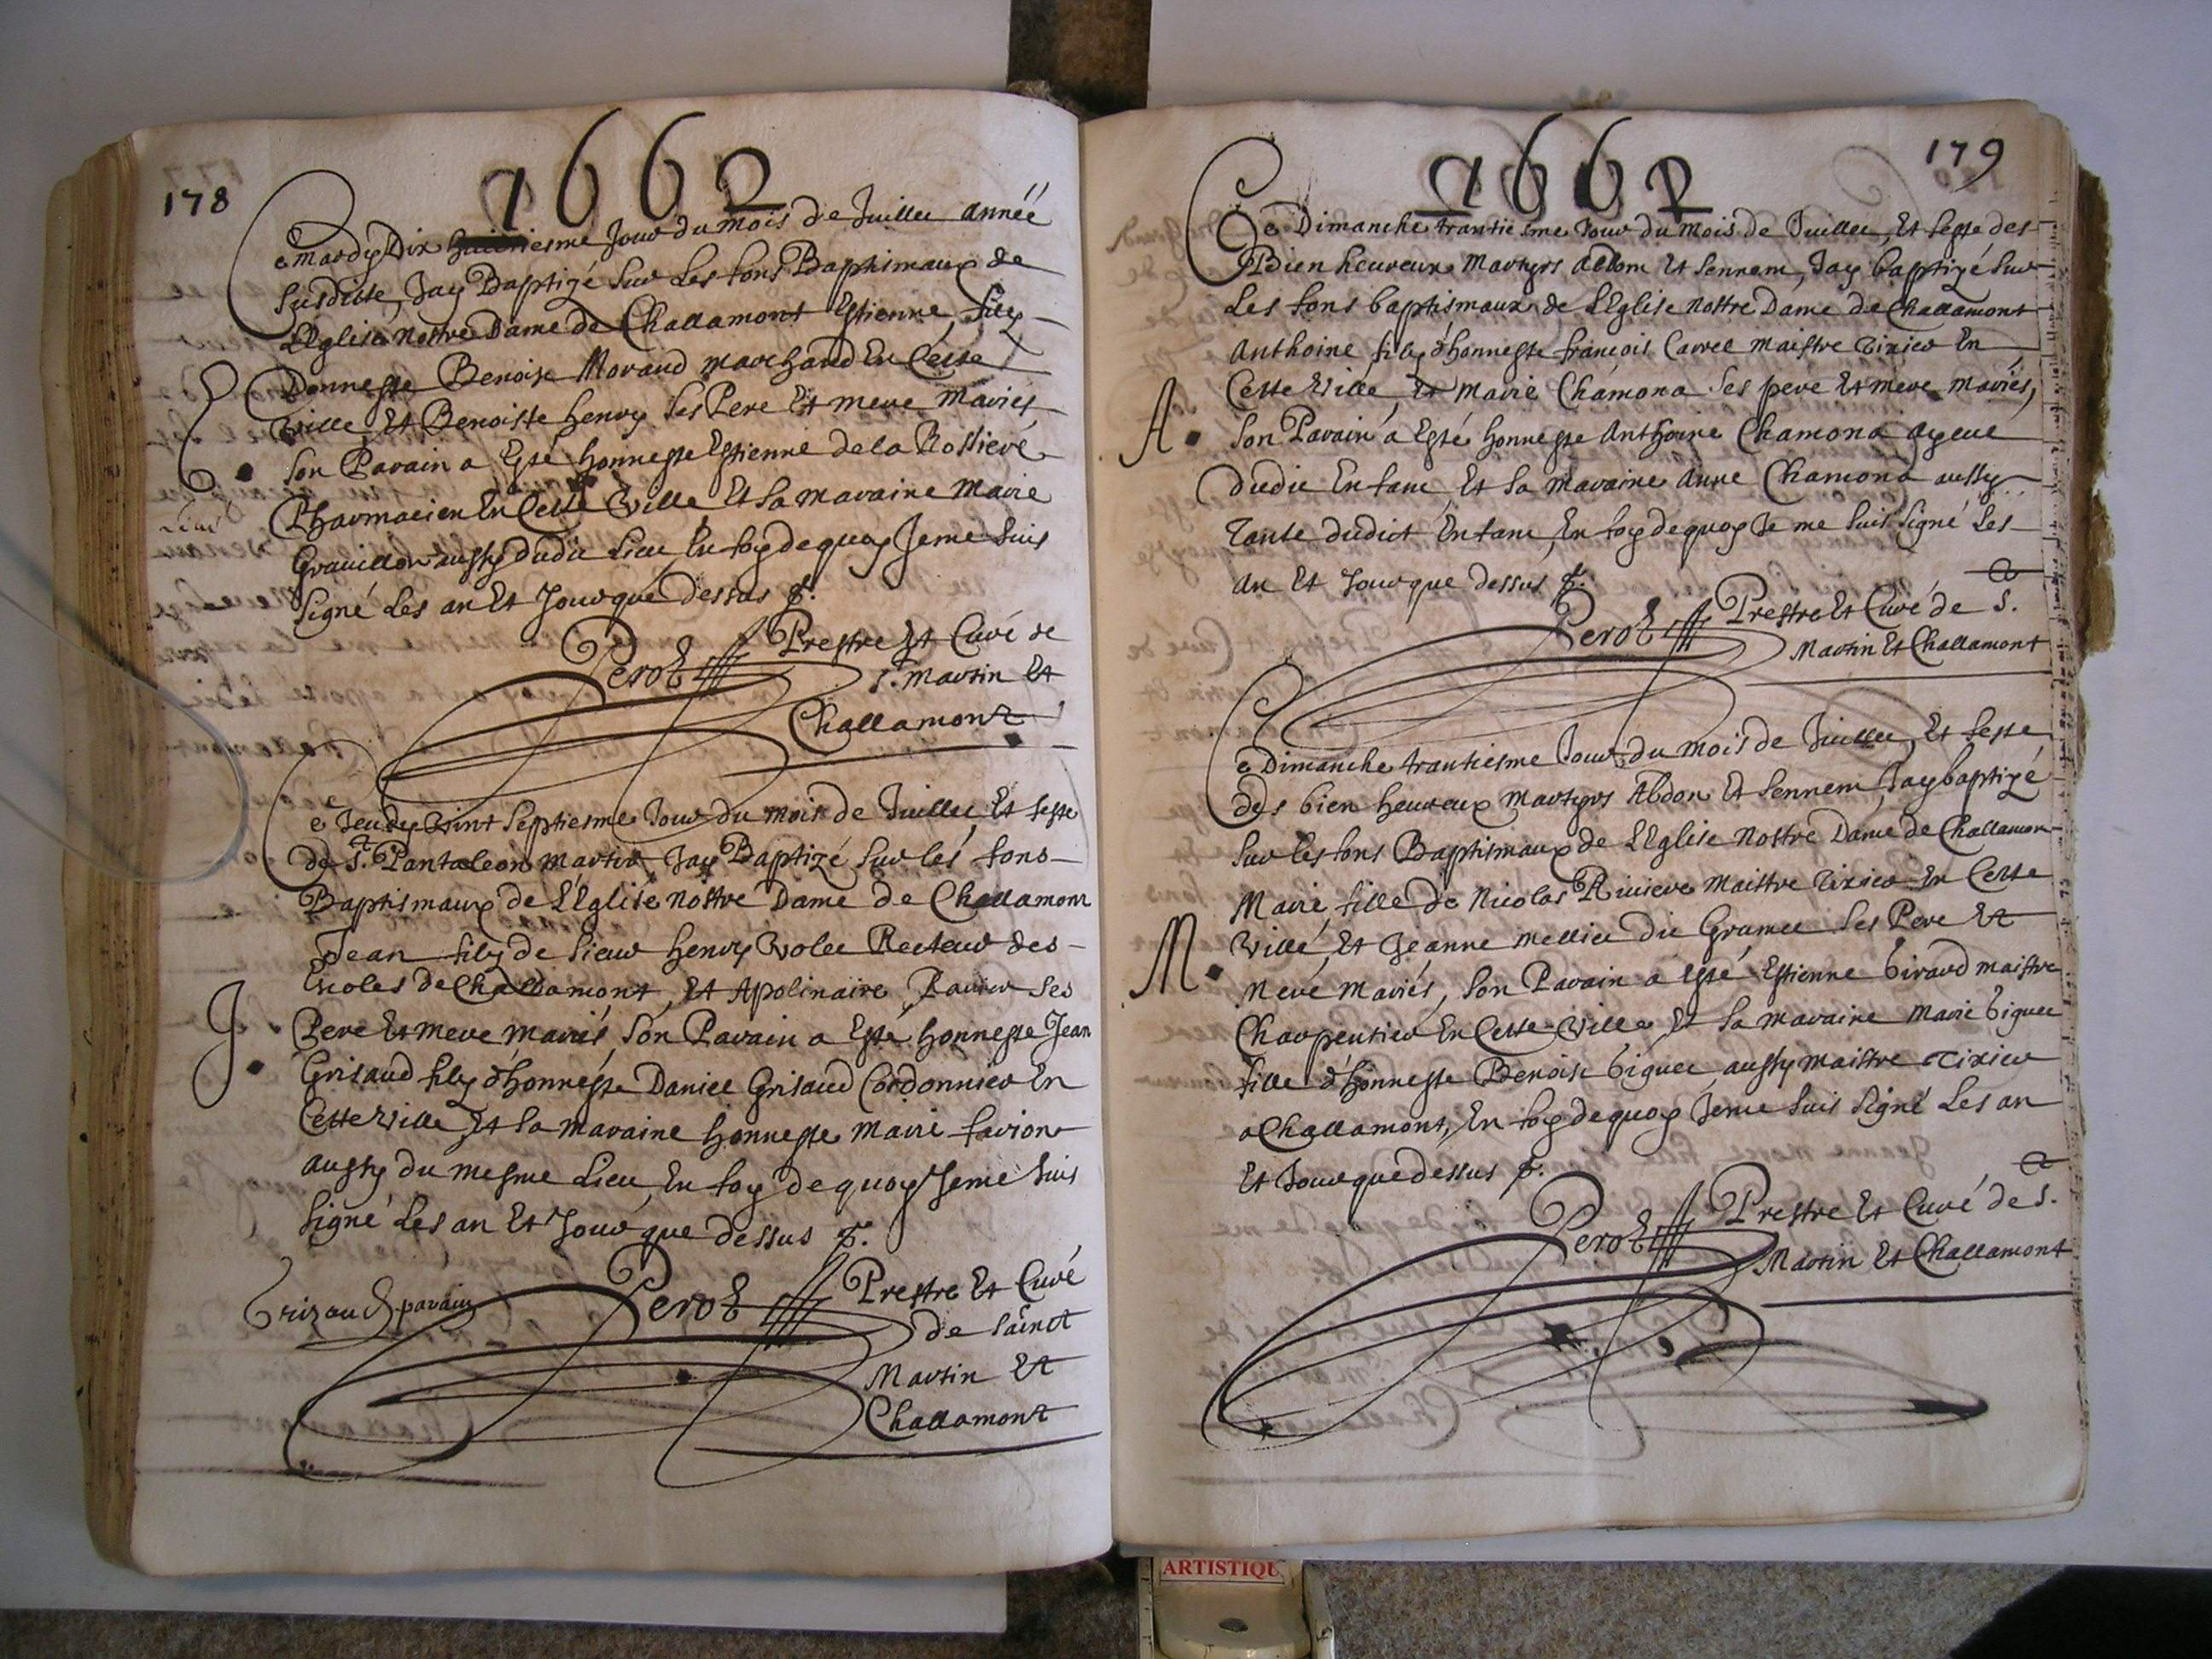 178
1662
Ce Mardy Dix huictiesme Jour du mois de Juillet Année
Susditte, Jay Baptizé Sur Les fons Baptismaux de
L'Eglise Nostre Dame de Challamont Estienne, filz
D'honneste Benoist Moraud Marchand En Cette
Ville Et Benoiste henry Ses Pere Et mere Mariés
Son Parain a Esté honneste Estienne de la
E.
Pharmacien En Cette Ville Et Sa maraine Marie
Grauillon aussy dudit Lieu En foy de quoy Je me Suis
Signé Les an Et Jour que dessus
Perot Prestre Et Curé de
St. Martin Et
Challamont
Ce Jeudy Vint Septiesme Jour du mois de Juillet, Et feste
de St. Pantaleon Martir, Jay Baptizé Sur les fons
Baptismaux de L'Eglise Nostre Dame de Challamont
Jean filz de Sieur henry Volet Recteur des
Escoles de Challamont, Et Apolinaire Ses
J.
Pere Et mere mariés Son Parain a Esté honneste Jean
Grisaud filz d'honneste Daniel Grisaud Cordonnier En
Cette Ville, Et Sa maraine honneste Marie farion
aussy du mesme Lieu, En foy de quoy Je me Suis
Signé Les an Et Jour que dessus
Grizaud parain
Perot Prestre Et Curé
de Sainct
Martin Et
Challamont
179
1662
Ce Dimanche trantiesme Jour du Mois de Juillet, Et feste des
Bien heureux Martyrs Abdom Et Sennem, Jay baptizé Sur
Les fons baptismaux de L'Eglise Nostre Dame de Challamont
Anthoine filz d'honneste francois Carrel Maistre Tixier En
Cette Ville, Et Marie Chamona Ses pere Et mere Mariés,
A.
Son Parain a Esté honneste Anthoine Chamona ayeul
dudit Enfant, Et Sa maraine Anne Chamona aussy
Tante dudict Enfant, En foy de quoy Je me Suis Signé Les
an Et Jour que dessus
Perot Prestre Et Curé de St.
Martin Et Challamont
Ce Dimanche trantiesme Jour du mois de Juillet, Et feste
des bien heureux Martyrs Abdon Et Sennem Jay baptizé
Sur les fons Baptismaux de L'Eglise Nostre Dame de Challamon
Marie fille de Nicolas Riuiere Maistre Tixier En Cette
Ville, Et Jeanne Melliet dit Gramel Ses Pere Et
M.
Mere Mariés, Son Parain a Esté Estienne Giraud maistre
Charpentier En Cette Ville Et Sa maraine Marie Giguet
fille d'honneste Benoist Giguet aussy maistre Tixier
a Challamont, En foy de quoy Je me Suis Signé Les an
Et Jour que dessus
Perot Prestre Et Curé de St.
Martin Et Challamont
ARTISTIQU